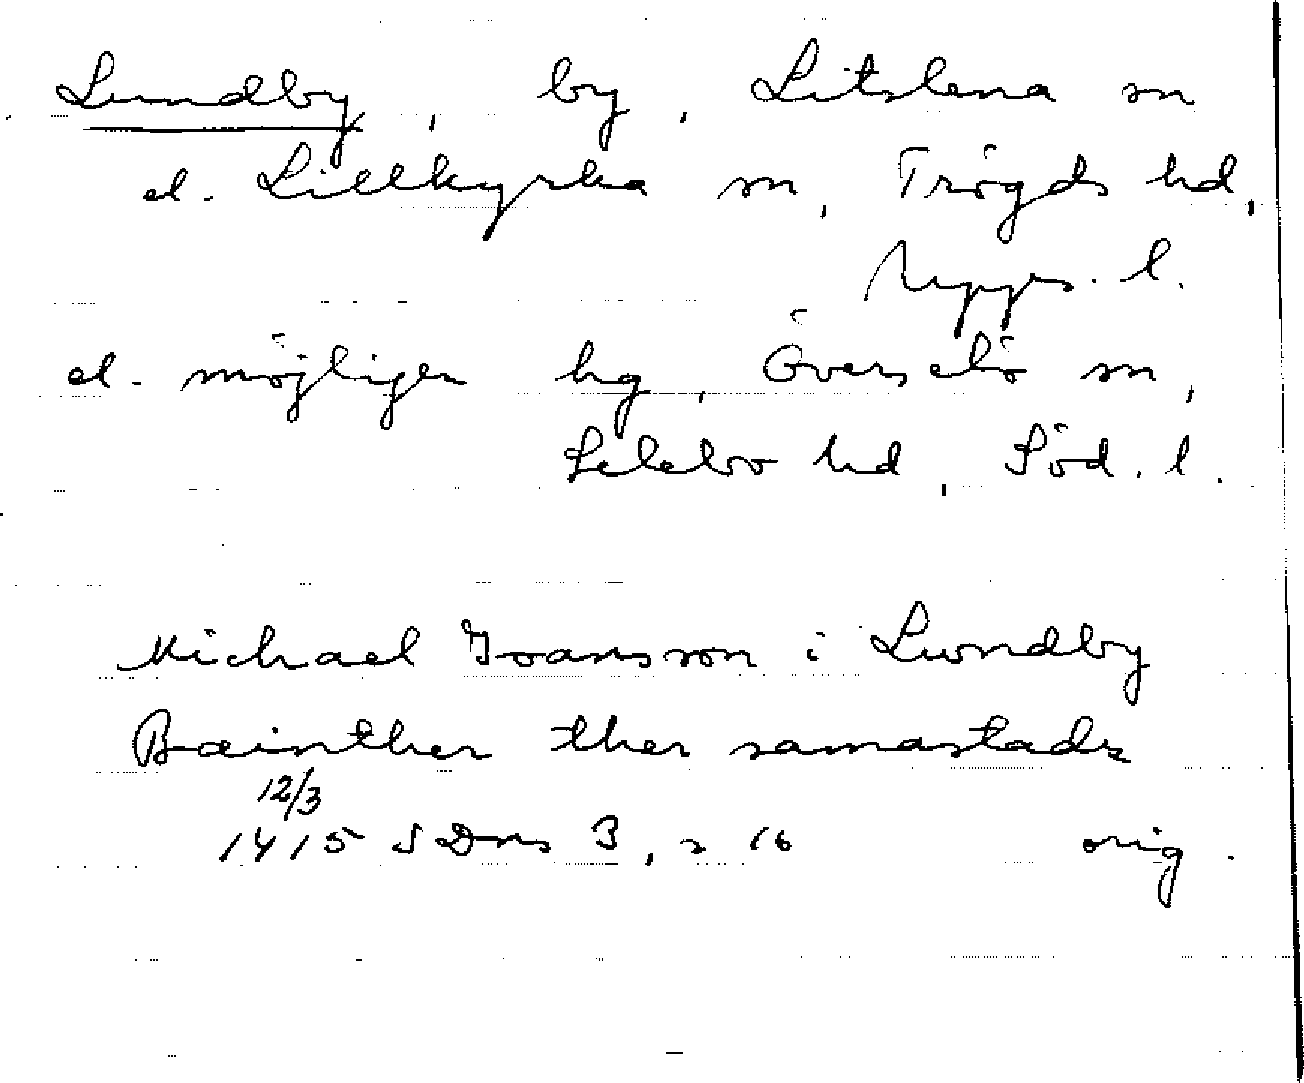 Lundby, by, Litslena sn
el. Lillkyrka sn, Trögds hd,
Upps. l.
el. möjligen hg, Överselö sn,
Selebo hd, Söd. l.
Michael Joansson i Lwndby
Bainther ther samastads
12/3
1415 SDns 3, s 16 orig.